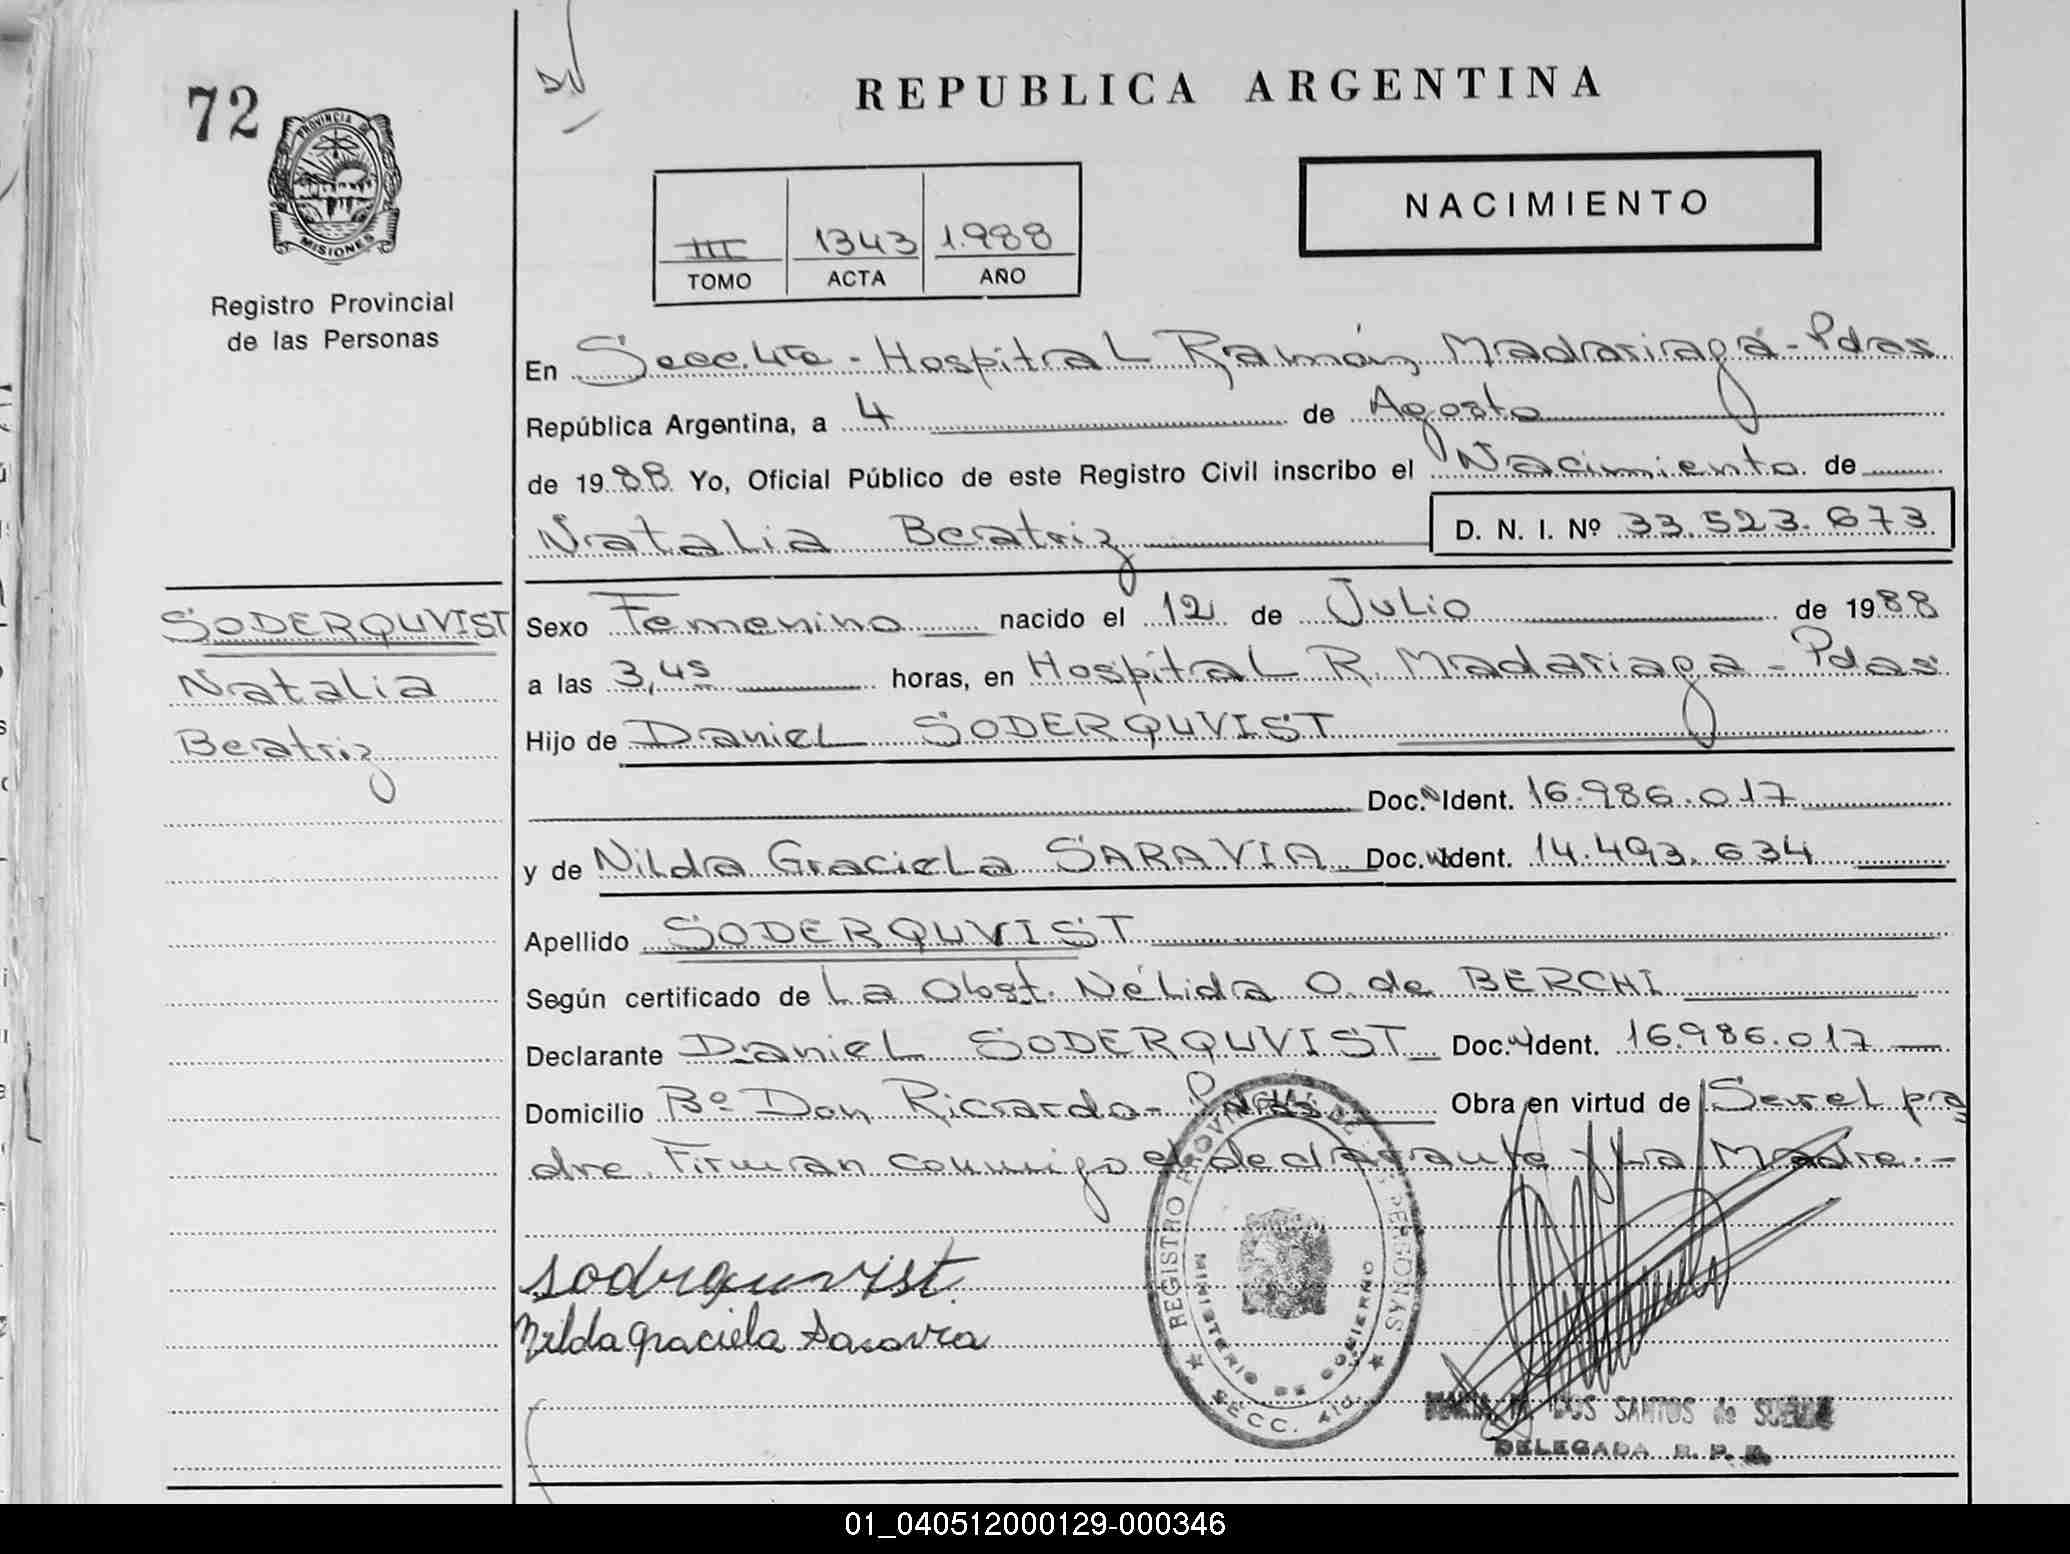 72
PROVINCIA DE
MISIONES
Registro Provincial
de las Personas
REPUBLICA ARGENTINA
NACIMIENTO
III 1343 1.988
TOMO ACTA AÑO
En Secc. 4ta - Hospital Ramón Madariaga - Pdas
República Argentina, a 4 de Agosto
de 1988 Yo, Oficial Público de este Registro Civil inscribo el Nacimiento de
Natalia Beatriz D. N. I. Nº 33.523.673
SODERQUVIST
Natalia
Beatriz
Sexo Femenino nacido el 12 de Julio de 1988
a las 3,45 horas, en Hospital R. Madariaga - Pdas
Hijo de Daniel SODERQUVIST
Doc. Ident. 16.986.017
y de Nilda Graciela SARAVIA Doc. Ident. 14.493.634
Apellido SODERQUVIST
Según certificado de La Obst. Nélida O. de BERCHI
Declarante Daniel SODERQUVIST Doc. Ident. 16.986.017
Domicilio Bº Don Ricardo - Pdas Obra en virtud de Ser el pa
dre. Firman conmigo el declarante y La Madre. -
sodrquvist.
Nilda Graciela Saravia
REGISTRO PROVINCIAL DE LAS PERSONAS
MINISTERIO DE GOBIERNO
SECC. 4ta.
DOS SANTOS de
DELEGADA R. P.
01_040512000129-000346